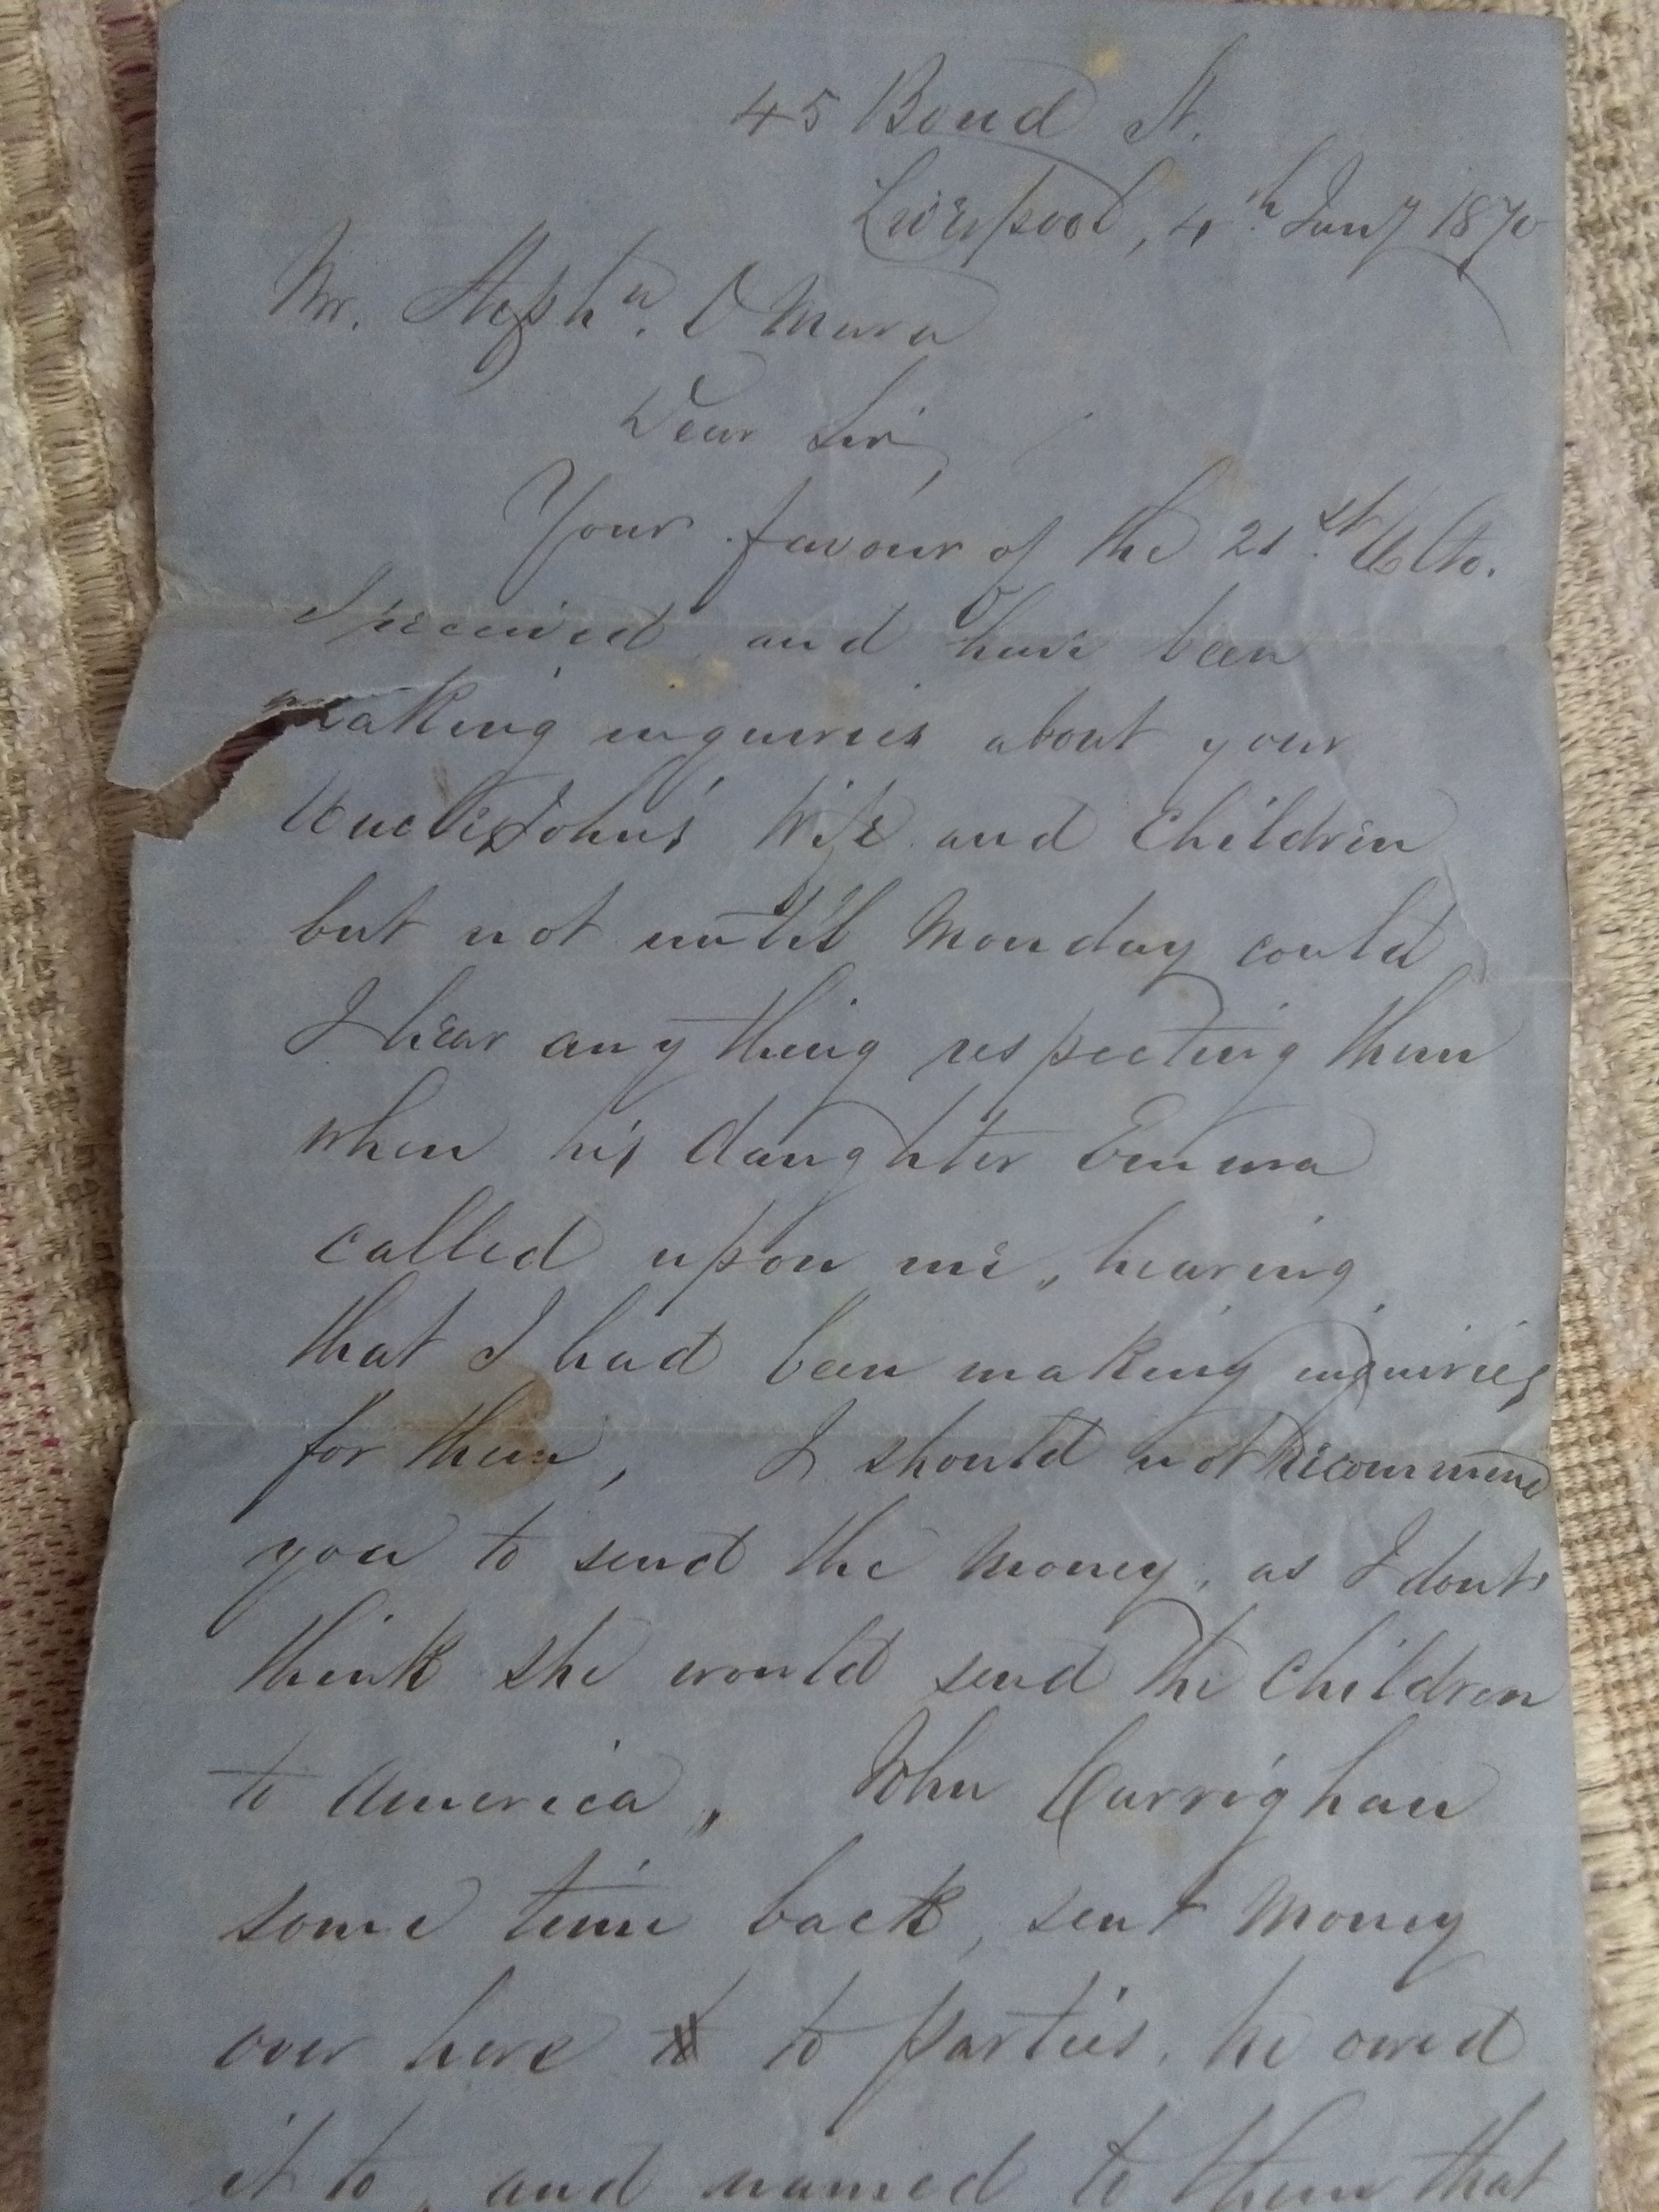 45 Bond St.
Liverpool, 4th. Jany 1870
Mr. Stephn. O Mara
Dear Sir,
Your favour of the 21st. Ulto.
I received, and have been
making inquiries about your
Uncle John's Wife and Children
but not until Monday could
I hear any thing respecting them
when his daughter Emma
called upon me, hearing
that I had been making inquiries
for them, I should not recommend
you to send the Money, as I dont
think she would send the Children
to America, John Carrighan
some time back, sent Money
over here to parties, he owed
it to, and named to them that